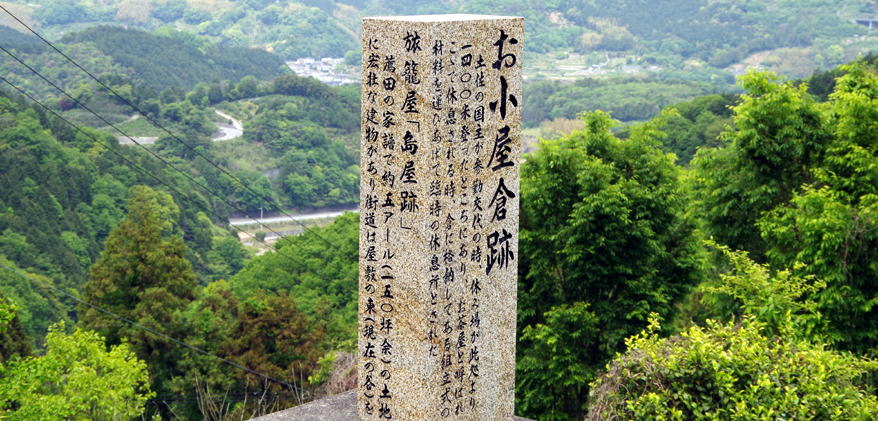 お小屋倉跡
土佐の国主が参勤交代の時、休み場が此処より
一四〇〇米登ったところにあり、お茶屋と呼ばれ
ここで休息される時、倉に格納してある組立式の
材料を運びあげて臨時の休息所とされた
旅籠屋「島屋跡」
薦田の家譜で約五アール(一五〇坪余)の土地
に宏壮な建物があり街道は屋敷の東(現在の谷)を